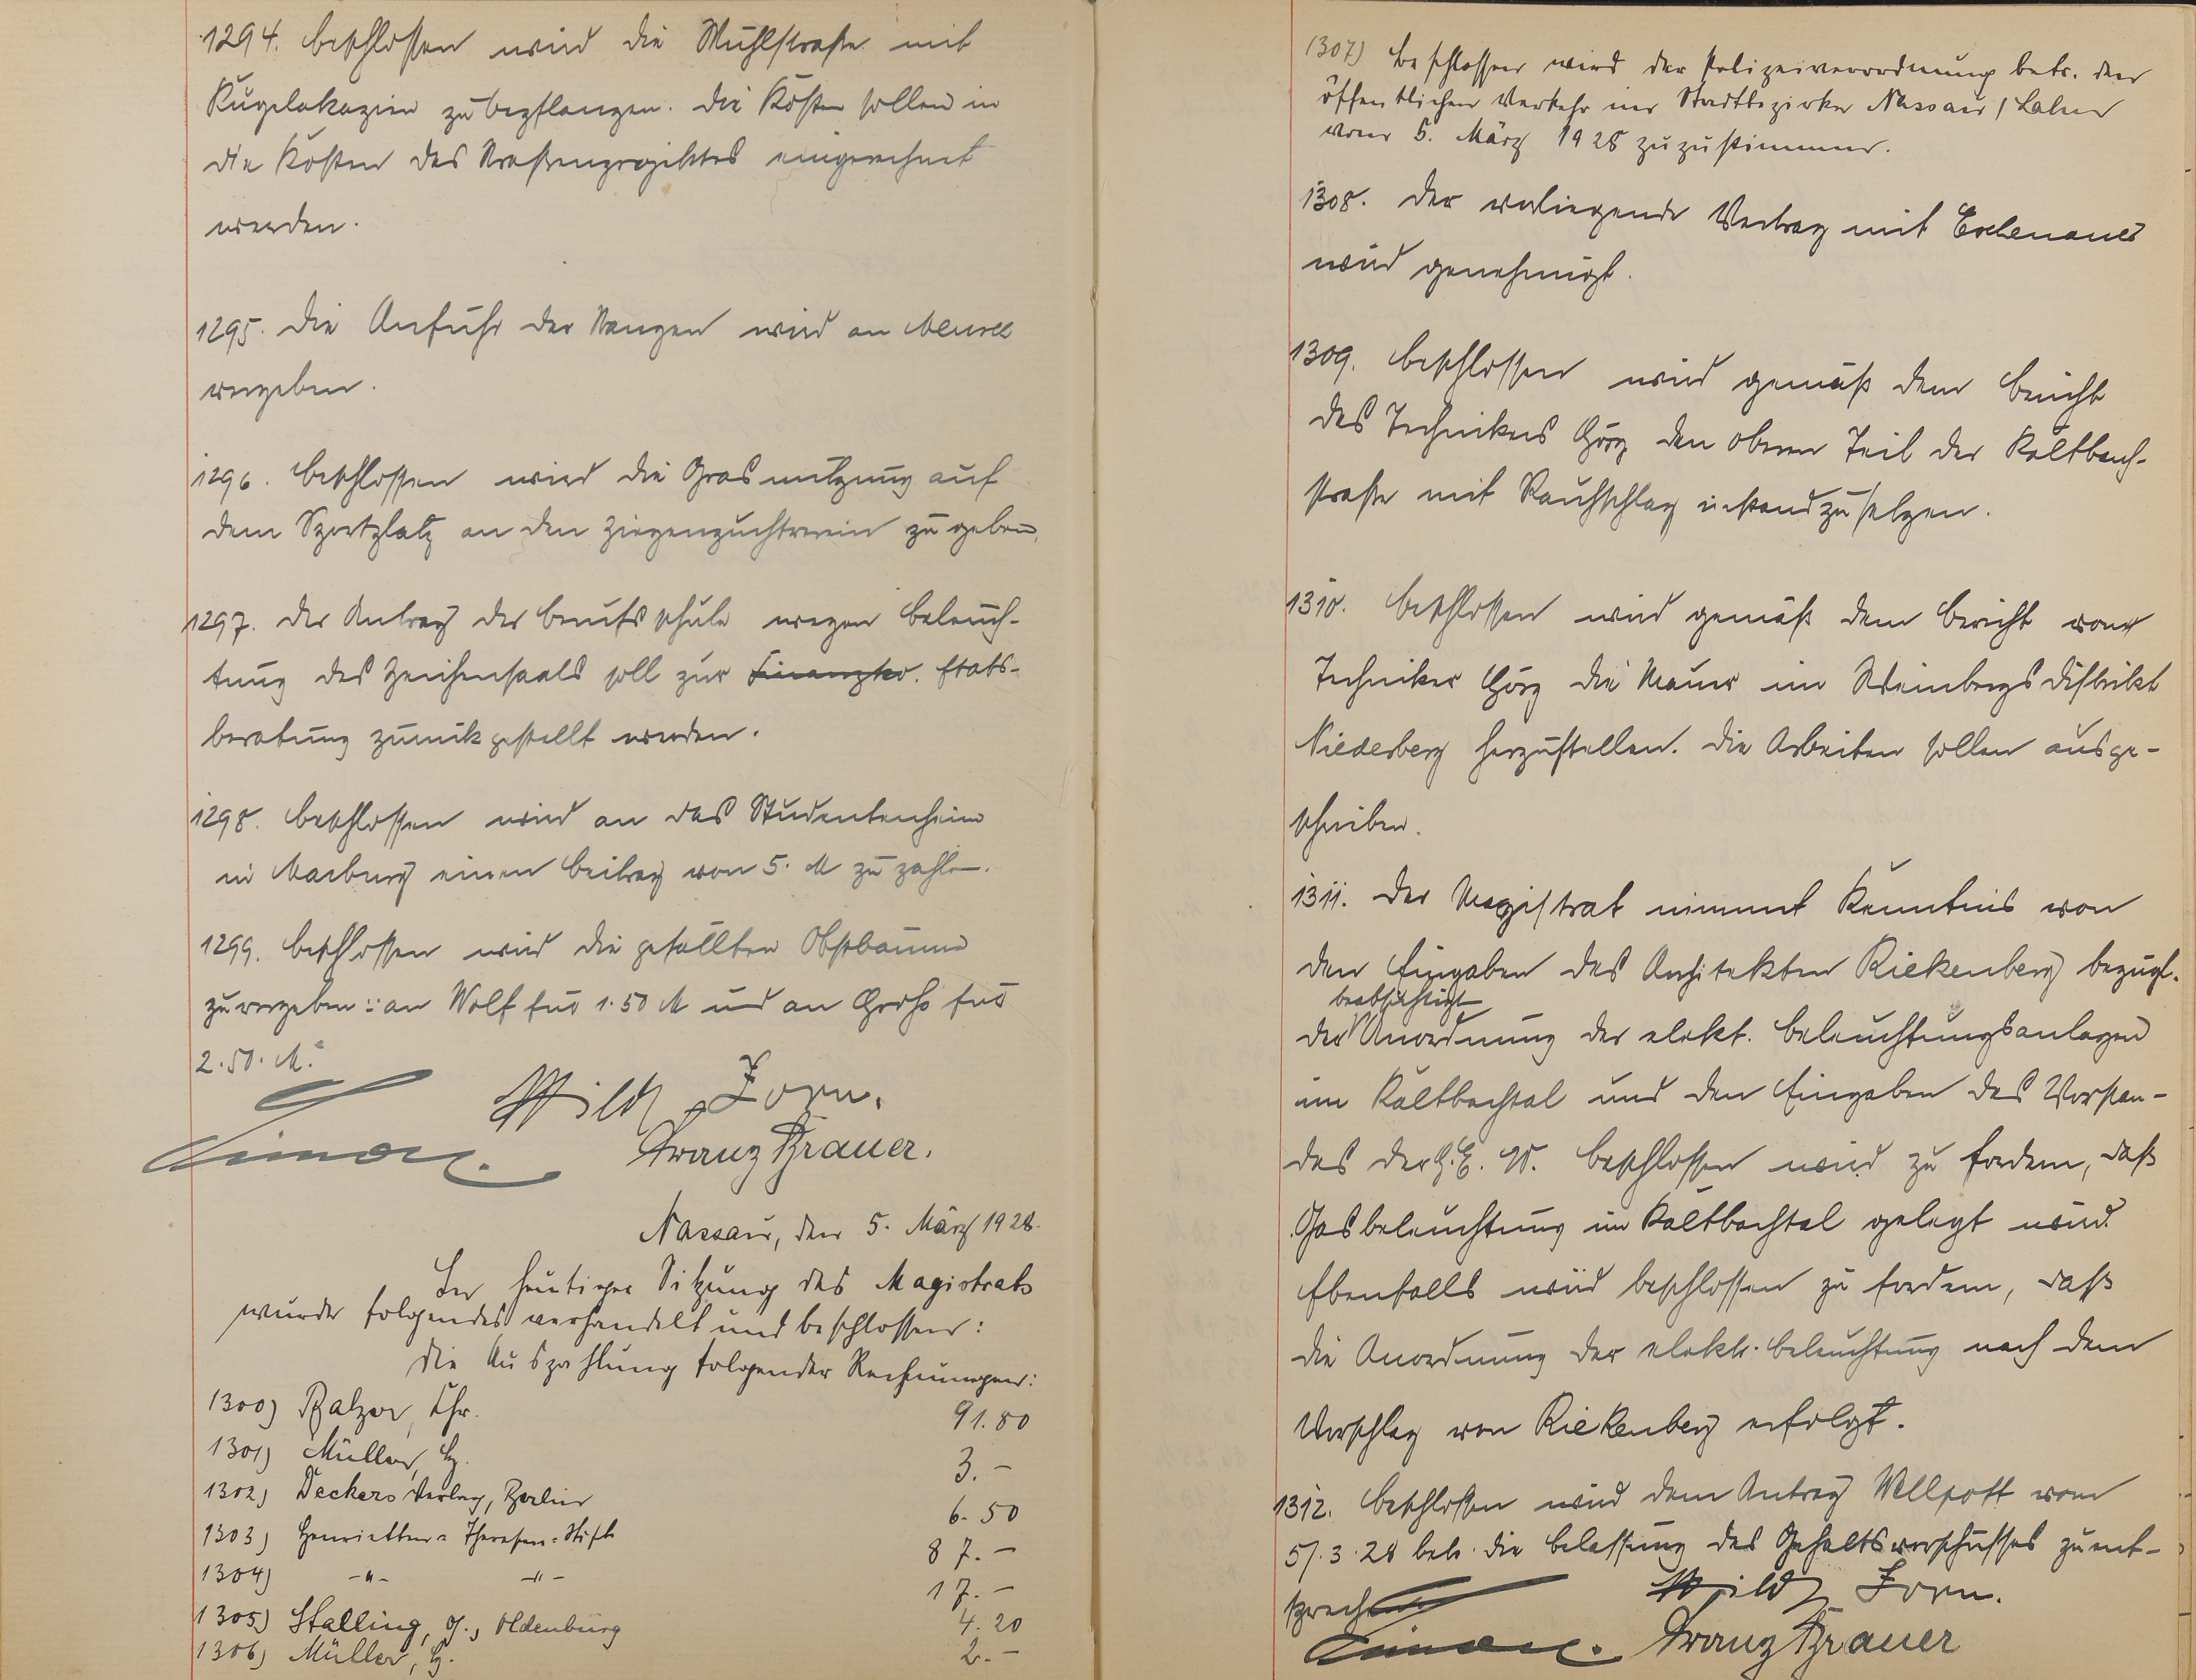 1294. Beschlossen wird die Mühlstraße mit
Kugelakazien zu bepflanzen. Die Kosten sollen in
die Kosten des Straßenprojektes eingerechnet
werden.
1295. Die Anfuhr der Stangen wird an
vergeben.
1296. Beschlossen wird die Grasnutzung auf
dem Sportplatz an den Ziegenzuchtverein zu geben.
1297. Der Antrag der Berufsschule wegen Beleuch-
tung des Zeichensaals soll zur Finanzko. Etats-
beratung zurückgestellt werden.
1298. Beschlossen wird an das Studentenheim
in Marburg einen Beitrag von 5. M zu zahlen.
1299. Beschlossen wird die gefällten Obstbäume
zu vergeben: an Wolf für 1.50 M und an Groß für
2.50. M.
Wild Zorn.
Simon. Franz Brauer.
Nassau, den 5. März 1928.
In heutiger Sitzung des Magistrats
wurde folgendes verhandelt und beschlossen:
Die Auszahlung folgender Rechnungen:
1300) Balzer, Chr. 91.80
1301) Müller, 3.–
1302) Deckers Verlag, Berlin 6.50
1303) Henrietten-Theresen-Stift 87.–
1304) –"– –"– 17.–
1305) Stalling, G., Oldenburg 4.20
1306) Müller, 2.–
1307) Beschlossen wird der Polizeiverordnung betr. den
öffentlichen Verkehr im Stadtbezirke Nassau/Lahn
vom 5. März 1928 zuzustimmen.
1308. Der vorliegende Vertrag mit Eschenauer
wird genehmigt.
1309. Beschlossen wird gemäß dem Bericht
des Technikers Görg den oberen Teil der Kaltbach-
straße mit Rauhschlag instandzusetzen.
1310. Beschlossen wird gemäß dem Bericht vom
Techniker Görg die Mauer im Weinbergsdistrikt
Niederberg herzustellen. Die Arbeiten sollen ausge-
schrieben.
1311. Der Magistrat nimmt Kenntnis von
den Eingaben des Architekten Riekenberg bezügl.
beabsichtigt
der Anordnung der elekt. Beleuchtungsanlagen
im Kaltbachtal und den Eingaben des Vorstan-
des der G.E.W. Beschlossen wird zu fordern, daß
Gasbeleuchtung im Kaltbachtal gelegt wird.
Ebenfalls wird beschlossen zu fordern, daß
die Anordnung der elektr. Beleuchtung nach dem
Vorschlag von Riekenberg erfolgt.
1312. Beschlossen wird dem Antrag Wellpott vom
5/.3.28 betr. die Belassung des Gehaltsvorschusses zu ent-
sprechen
Wild Zorn.
Simon. Franz Brauer